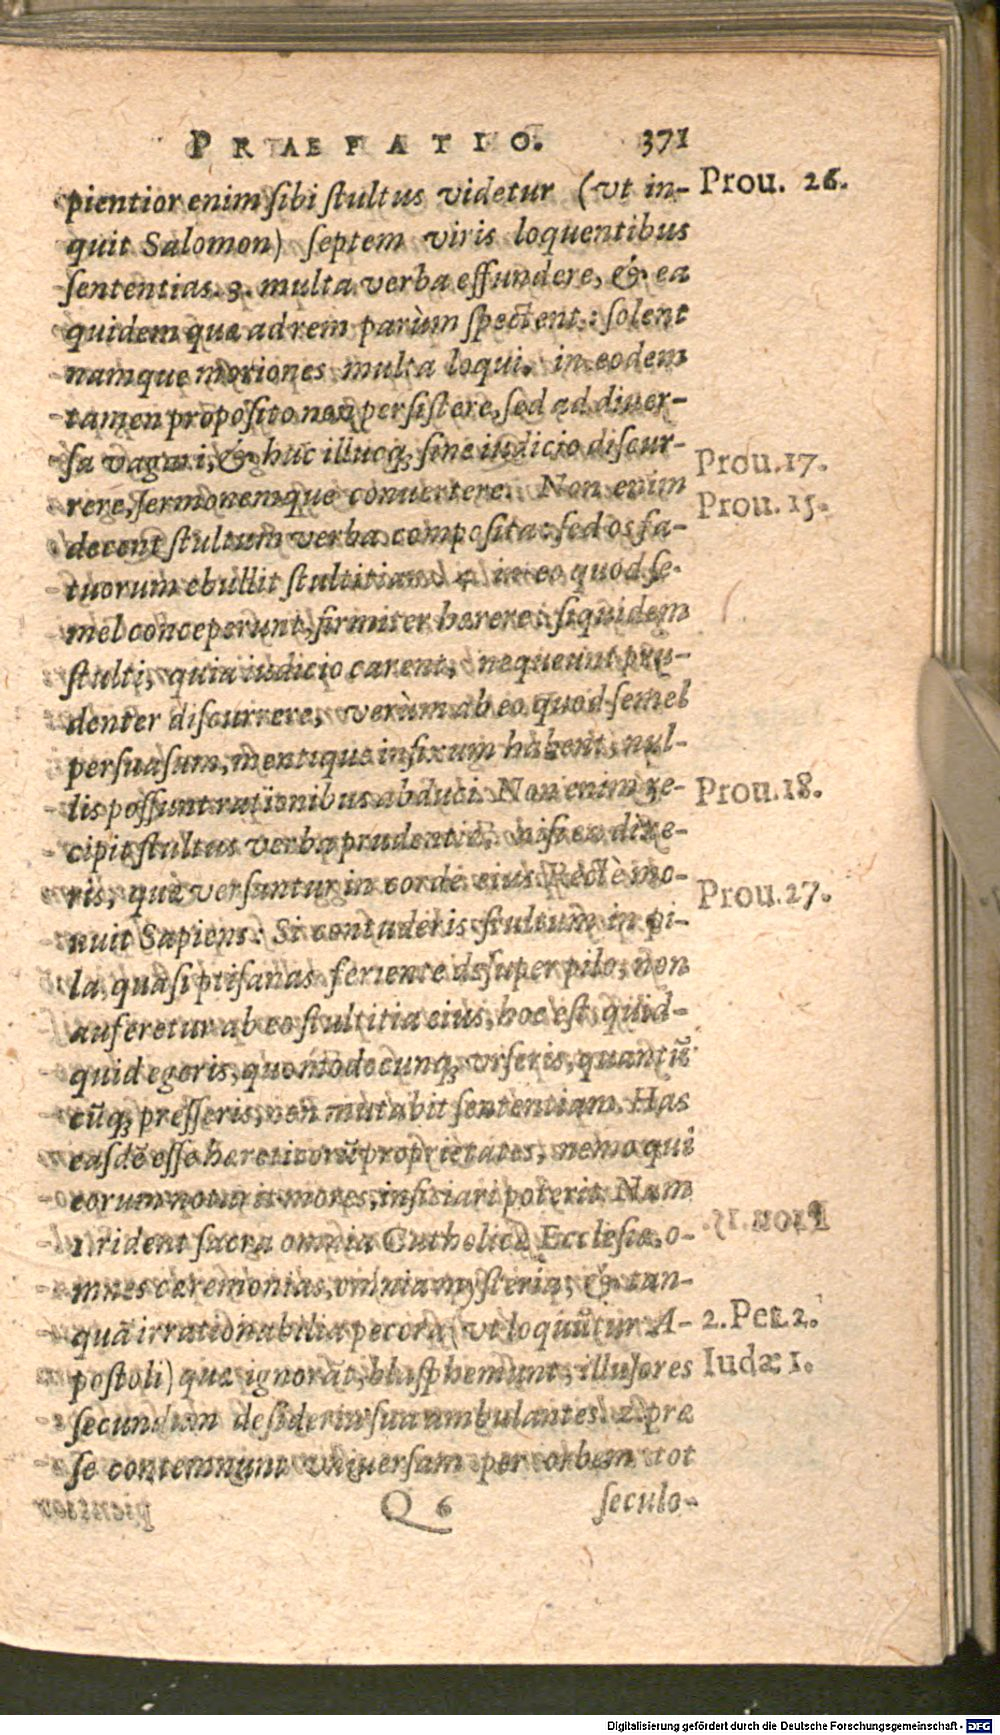 PRAEFATIO. 371
pientior enim sibi stultus videtur (vt in- Prou. 26.
quit Salomon) septem viris loquentibus
sententias. 3. multa verba effundere, & ea
quidem quæ ad rem parùm spectent: solent
namque moriones multa loqui. in eodem
tamen proposito non persistere, sed ad diuer-
sa vagari, & huc illucq; sine iudicio discur- Prou. 17.
rere, sermonemque conuertere. Non enim Prou. 15.
decent stultum verba composita: sed os fa-
tuorum ebullit stultitiam. 4. in eo quod se-
mel conceperunt, firmiter hærere: siquidem
stulti, quia iudicio carent, nequeunt pru-
denter discurrere, verùm ab eo quod semel
persuasum, mentique infixum habent, nul-
lis possunt rationibus abduci. Non enim re- Prou. 18.
cipit stultus verba prudentiæ, nisi ea dixe-
ris, quæ versantur in corde eius. Rectè mo- Prou. 27.
nuit Sapiens: Si contuderis stultum in pi-
la, quasi ptisanas feriente desuper pilo, non
auferetur ab eo stultitia eius, hoc est, quid-
quid egeris, quomodocunq; vrseris, quantũ
cũq; presseris, non mutabit sententiam. Has
easdẽ esse hæreticorũ proprietates, nemo qui
eorum nouerit mores, inficiari poterit. Nam
1. rident sacra omnia Catholicæ Ecclesiæ, o-
mnes cæremonias, omnia mysteria, & tan-
quã irrationabilia pecora (vt loquũtur A- 2. Pet. 2.
postoli) quæ ignorãt, blasphemunt, illusores Iudæ 1.
secundum desideria sua ambulantes. 2. præ
se contemnunt vniuersam per orbem tot
Q 6 seculo-
Digitalisierung gefördert durch die Deutsche Forschungsgemeinschaft - DFG